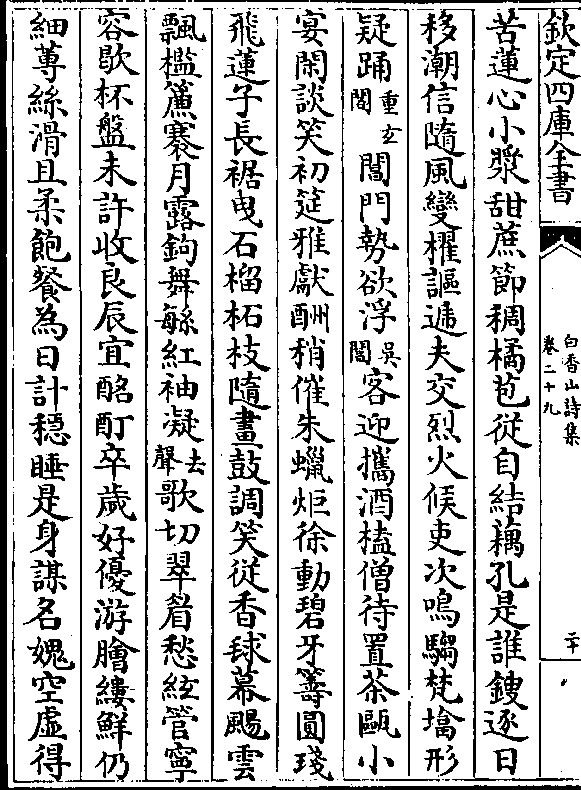 欽定四庫全書
白香山詩集
卷二十九
二十
苦蓮心小漿甜蔗節稠橘苞從自結藕孔是誰鎪逐日
移潮信隨風變櫂謳遞夫交烈火候吏次鳴騶梵塔形
疑踊重玄閣閶門勢欲浮吳閶客迎攜酒榼僧待置茶甌小
宴閑談笑初筵雅獻酬稍催朱蠟炬徐動碧牙籌圓琖
飛蓮子長裾曳石榴柘枝隨畫鼓調笑從香毬幕颺雲
飄檻簾褰月露鉤舞繇紅袖凝去聲歌切翠眉愁絃管寧
容歇杯盤未許收良辰宜酩酊卒歲好優游膾縷鮮仍
細蓴絲滑且柔飽餐為日計穩睡是身謀名媿空虛得